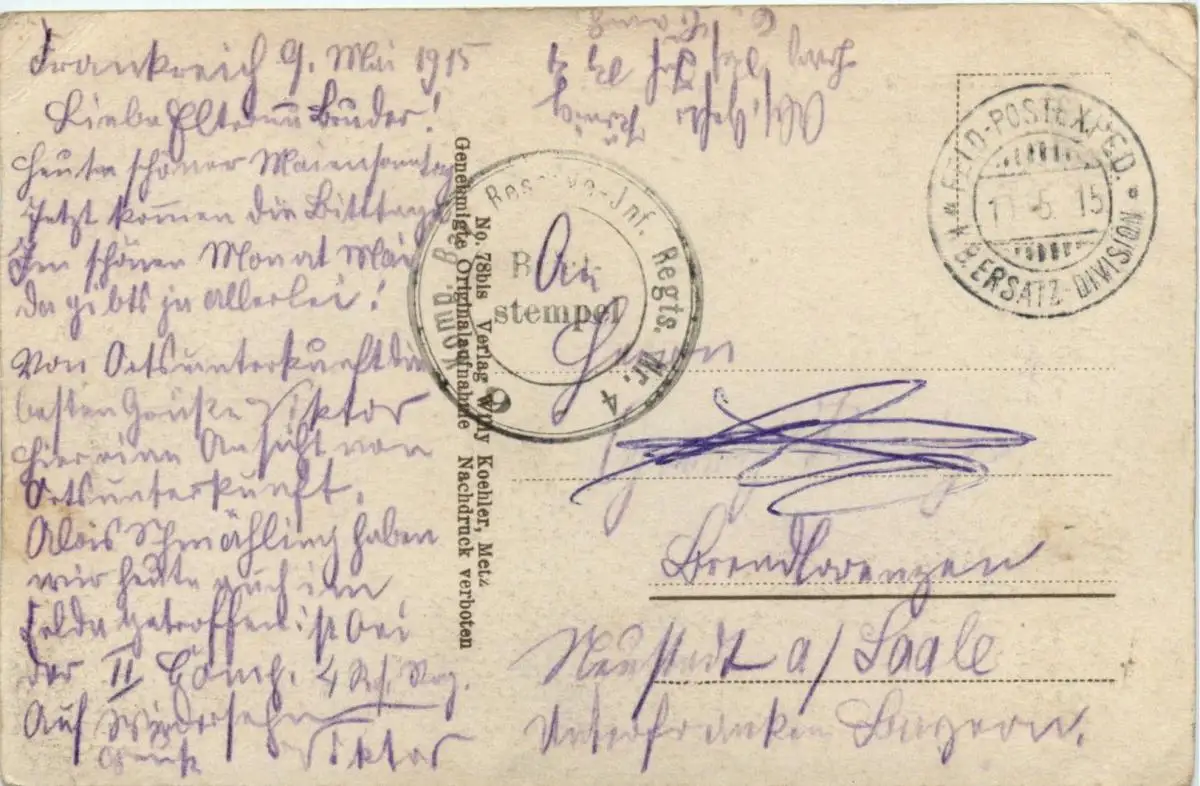 Frankreich 9. Mai 1915
Liebe Eltern u Bruder!
Heute schöner Maiensonntag
Jetzt kom̄en die Bitttage
Im schönen Monat Mai
da gibts ja allerlei!
Von Ortsunterkunft die
besten Grüße Viktor
Hier eine Ansicht von
Ortsunterkunft.
Alois Schmähling haben
wir heute auch im
Felde getroffen ist bei
der II Comp. 4 Rs. Reg.
Auf Wiedersehn
Gruß Viktor
Genehmigte Originalaufnahme Nachdruck verboten
No. 78bis Verlag Willy Koehler, Metz
Reserve-Inf. Regts. Nr. 4
Brief-
stempel
9. Komp.
An
FELD-POSTEXPED.
11.5.15
* 8. ERSATZ-DIVISION *
Brendlorenzen
Neustadt a/Saale
Unterfranken Bayern.